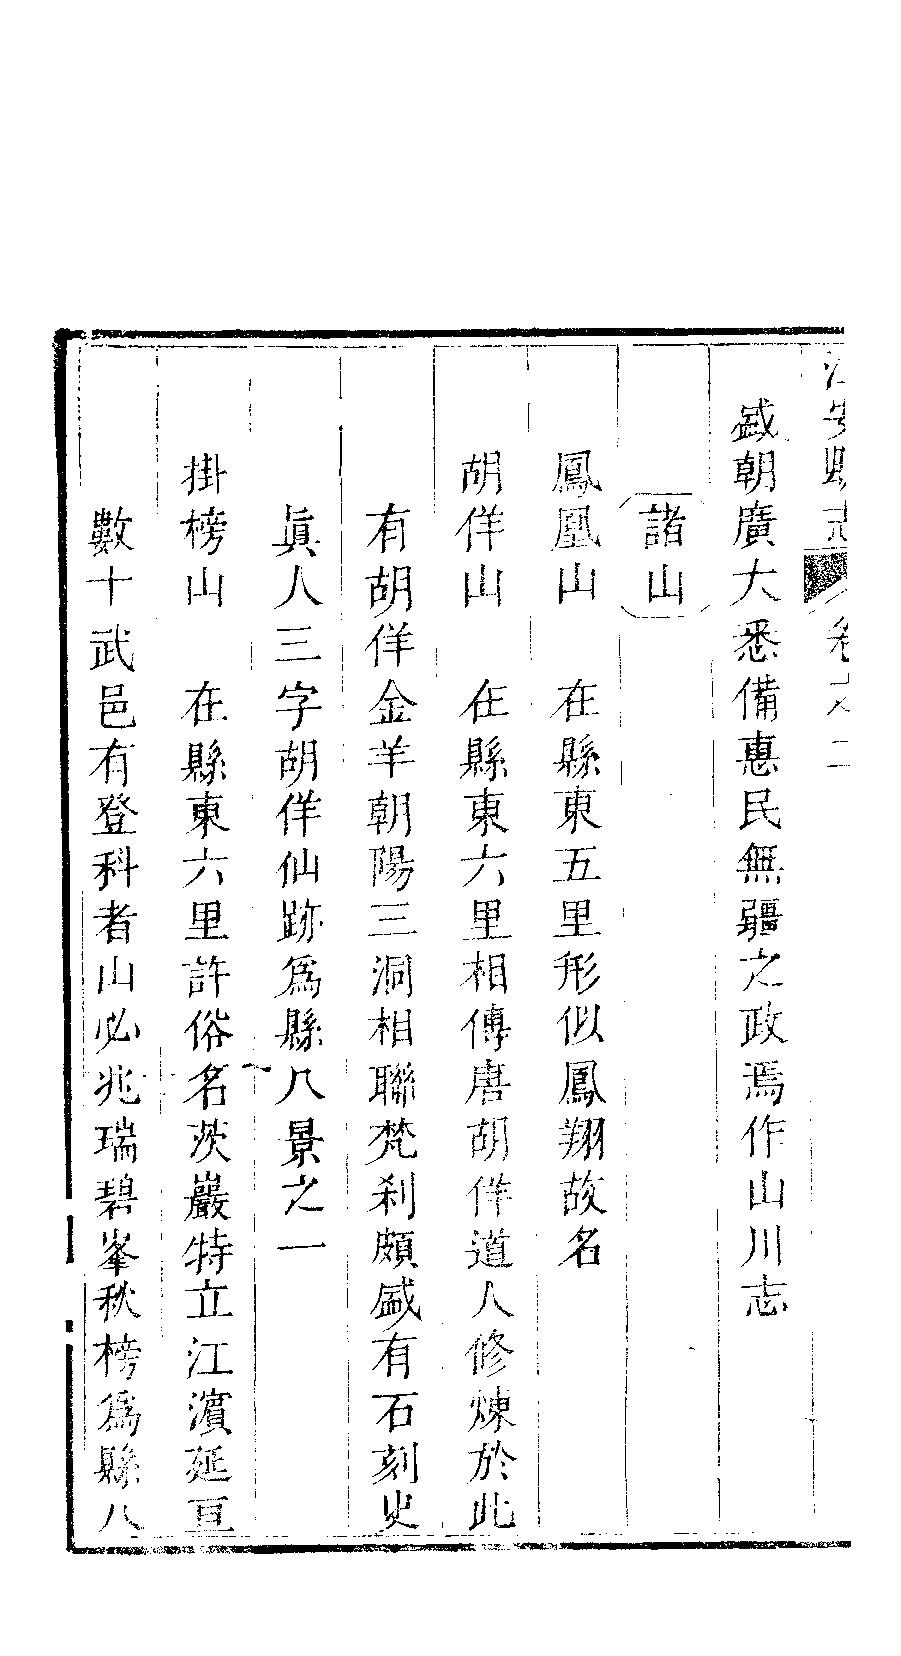 江安縣志 卷之二
盛朝廣大悉備惠民無疆之政焉作山川志
諸山
鳳凰山 在縣東五里形似鳳翔故名
胡佯山 在縣東六里相傳唐胡佯道人修煉於此
有胡佯金羊朝陽三洞相聯梵刹頗盛有石刻史
眞人三字胡佯仙跡爲縣八景之一
掛榜山 在縣東六里許俗名茨巖特立江濵延亘
數十武邑有登科者山必兆瑞碧峯秋榜爲縣八